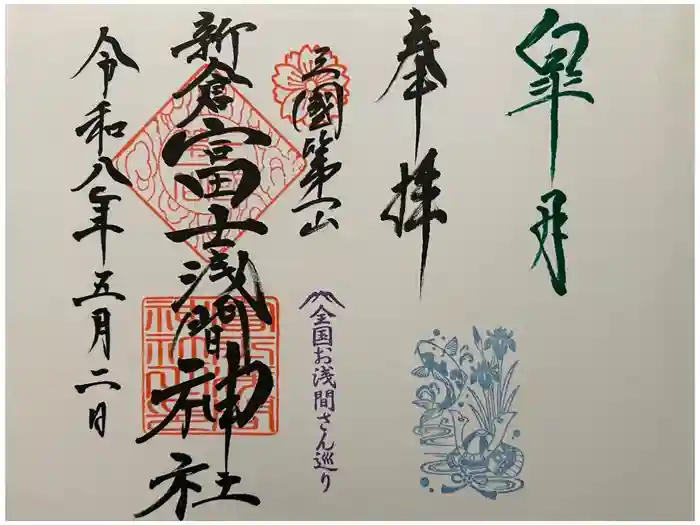 皐月
奉拝
三國第一山
新倉富士浅間神社
全国お浅間さん巡り
令和八年五月二日